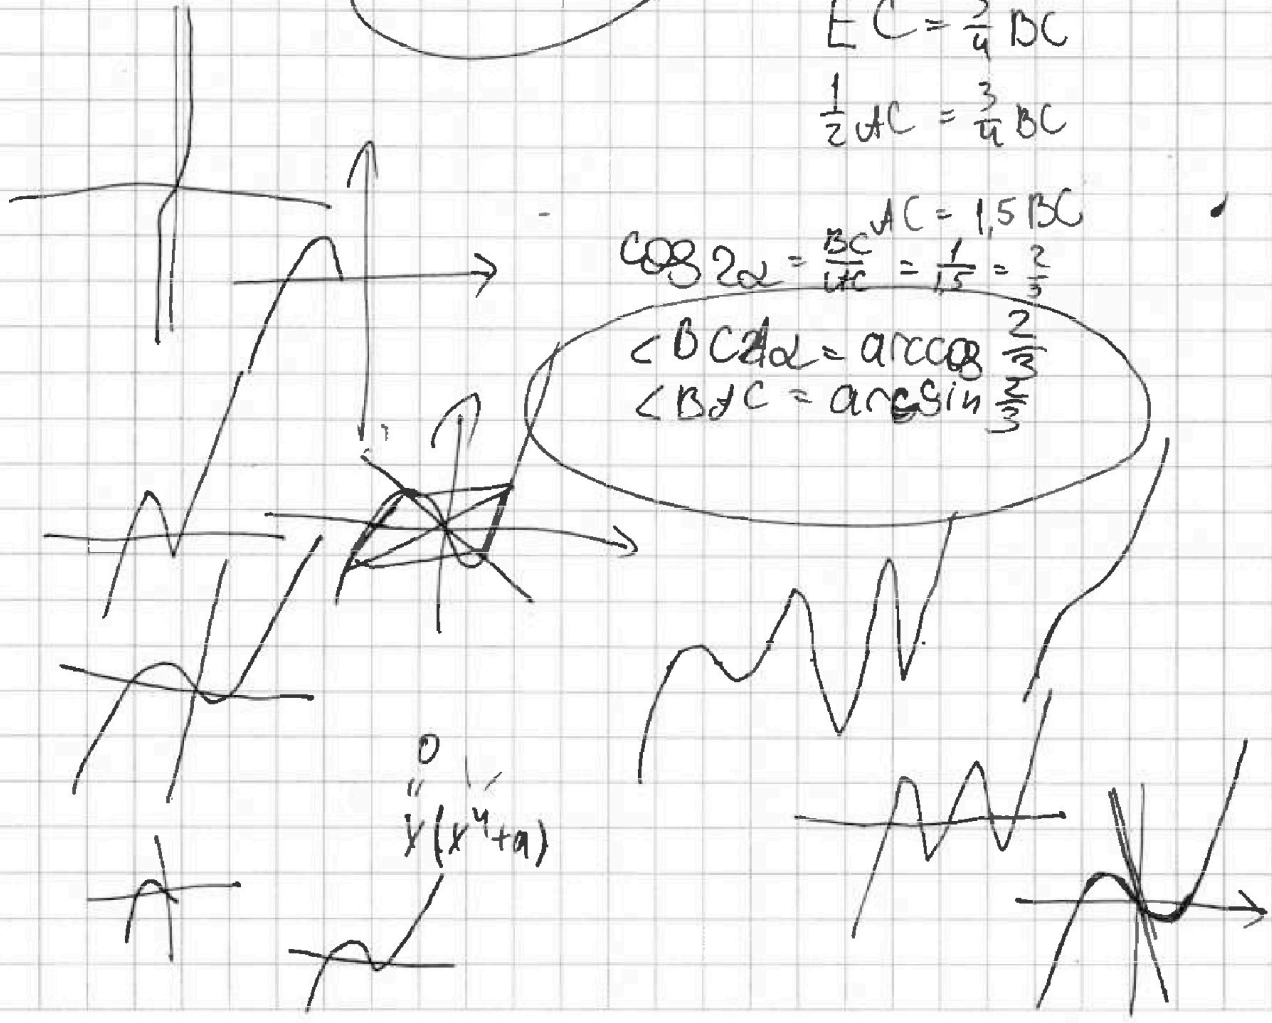 EC = 3/4 BC
1/2 AC = 3/4 BC
AC = 1,5 BC
cos 2α = BC/AC = 1/1,5 = 2/3
<BCA = arccos 2/3
<BAC = arcsin 2/3
0
x(x⁴+a)